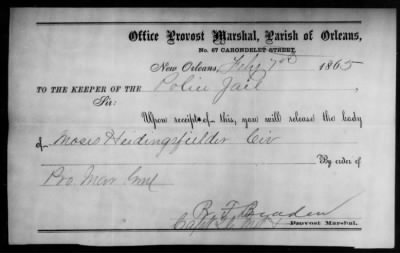 Office Provost Marshal, Parish of Orleans,
No. 67 CARONDELET STREET,
New Orleans, Feby 7th 1865
TO THE KEEPER OF THE Police Jail,
Sir:
Upon receipt of this, you will release the body
of Moses Heidingsfelder Civ
By order of
Pro Mar Genl
R. F. Braden
Capt
Provost Marshal.